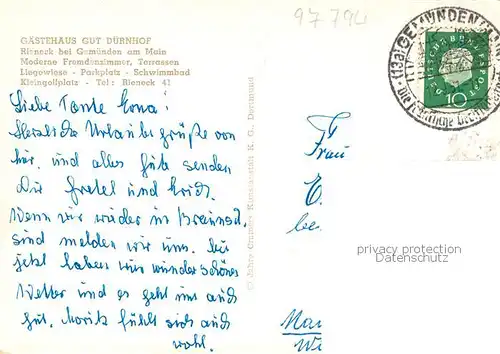 97 794
GÄSTEHAUS GUT DÜRNHOF
Rieneck bei Gemünden am Main
Moderne Fremdenzimmer, Terrassen
Liegewiese - Parkplatz - Schwimmbad
Kleingolfplatz - Tel: Rieneck 41
(13a) GEMÜNDEN
DEUTSCHE BUNDESPOST
10
Liebe Tante Erna!
Herzliche Urlaubsgrüße von
hier, und alles Gute senden
Dir Gretel und Erich.
Wenn wir wieder in Braunsch.
sind melden wir uns. Bis
jetzt haben wir wunderschönes
Wetter und es geht uns auch
gut, Moritz fühlt sich auch
wohl.
Cramers Kunstanstalt K. G., Dortmund
Frau
E.
privacy protection
Datenschutz